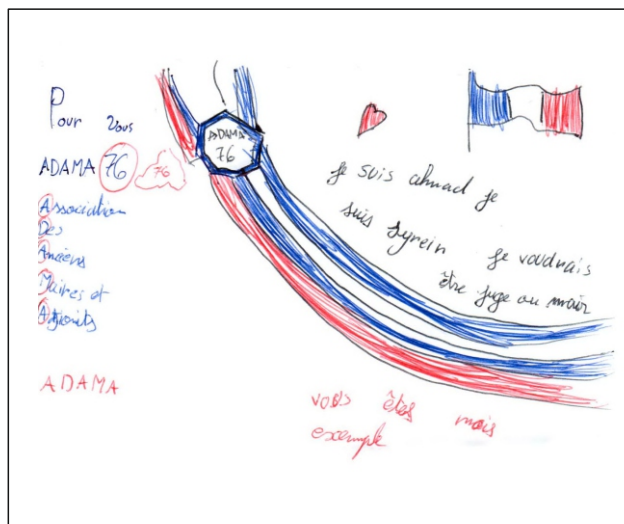 Pour Vous
ADAMA 76
76
Association
Des
Anciens
Maires et
Adjoints
ADAMA
ADAMA
76
je suis ahmad je
suis syrein je voudrais
être juge ou mair
vous êtes mais
exemple